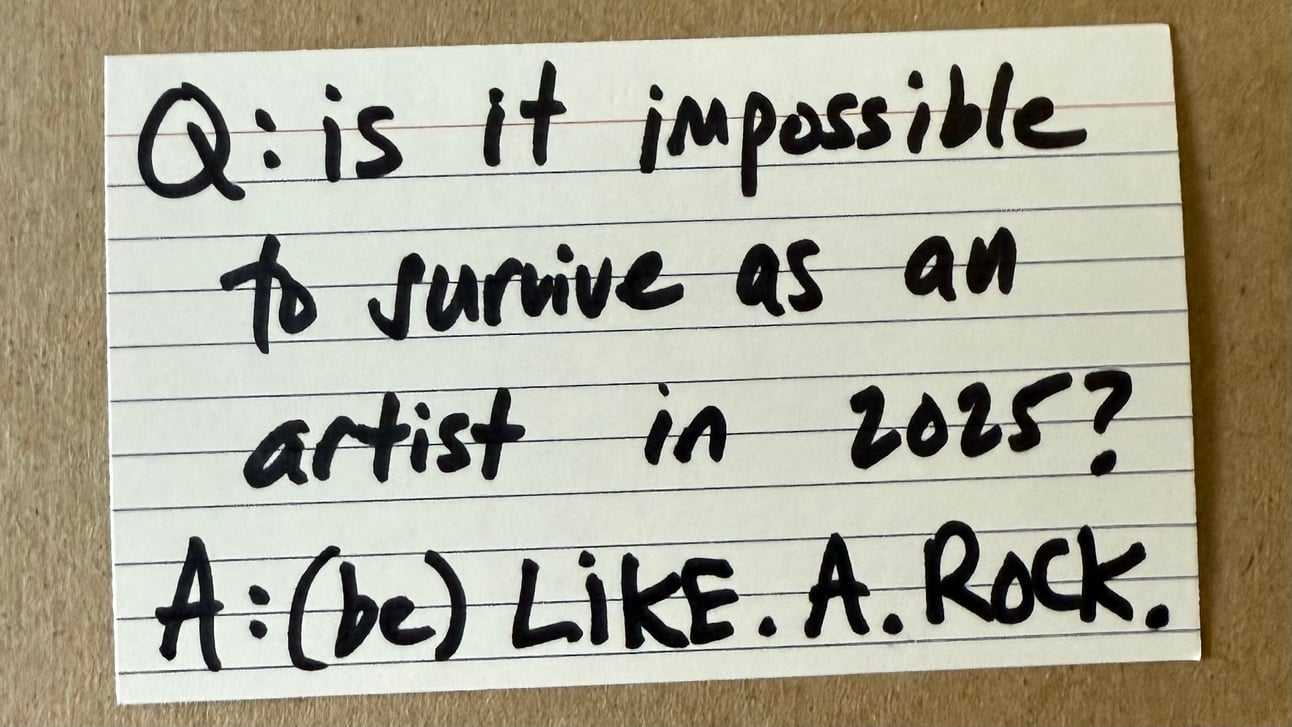 Q: is it impossible
to survive as an
artist in 2025?
A: (be) LiKE. A. RoCK.